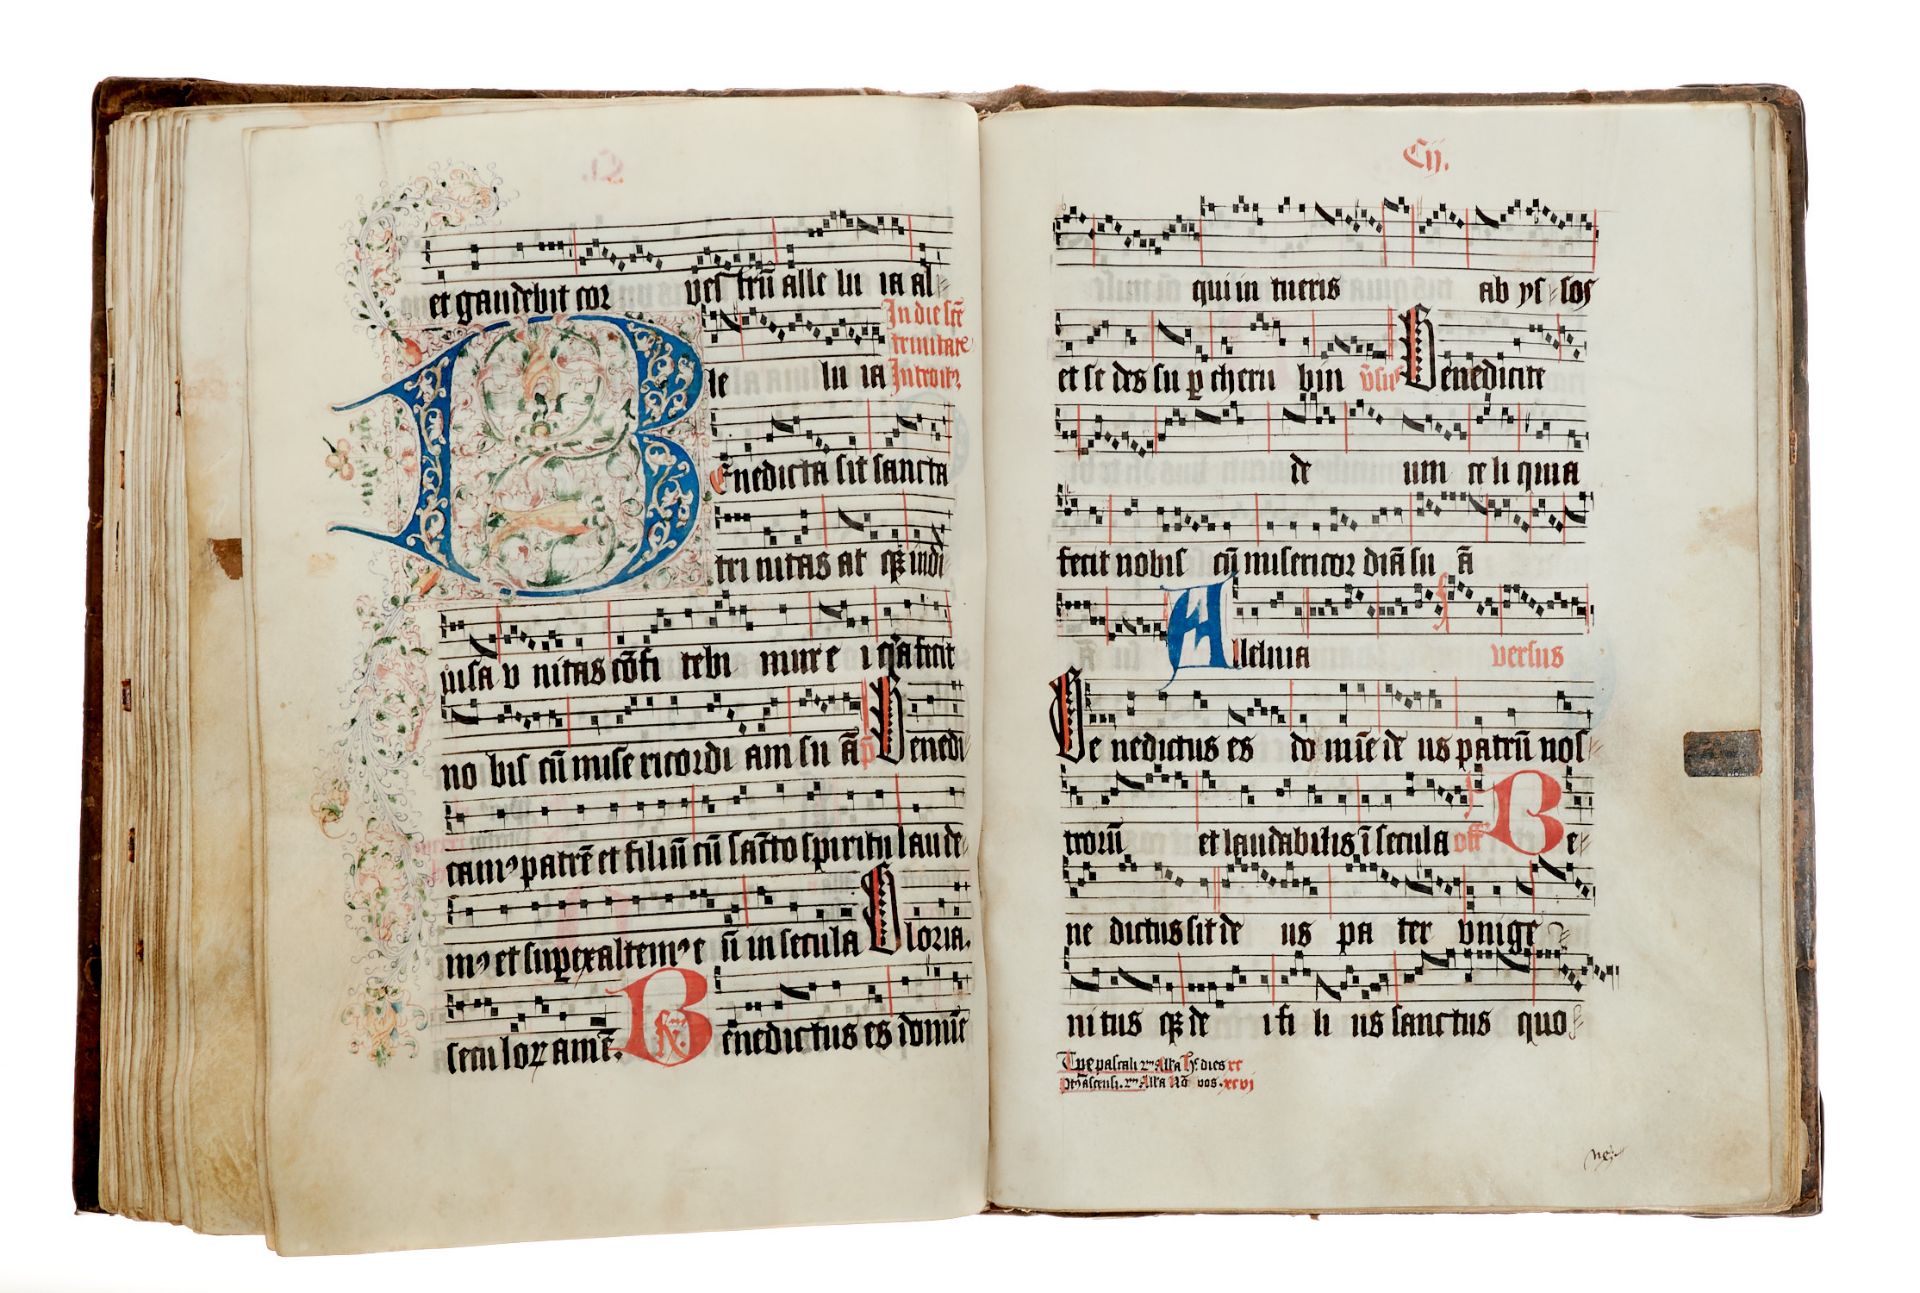 et gaudebit cor vestrū alle lu ia al⸗
In die scē
trinitate
le lu ia Introitꝰ
Benedicta sit sancta
tri nitas at qꝫ indi
uisa v nitas cōfi tebi mur e i qꝛa fecit
no bis cū mise ricordi am su ā p̄ Benedi
camꝰ patrē et filiū cū sācto spiritu laude⸗
mꝰ et suꝑexaltemꝰ e ū in secula Gloria.
seculoꝝ amē. Benedictus es domīe
Cij.
qui in tueris ab ys⸗sos
et se des su ꝑ cheru bin v̄sus Benedicite
de um ce li quia
fecit nobis cū misericor diā su ā
Alleluia versus
Be nedictus es do mīe de us patrū nos⸗
trorū et laudabilis ī secula off Be⸗
ne dictus sit de us pa ter vnige
ni tus qꝫ de i fi li us sanctus quo
Tꝑe pascali Alla dies xc
Alla Nō vos. xcvi